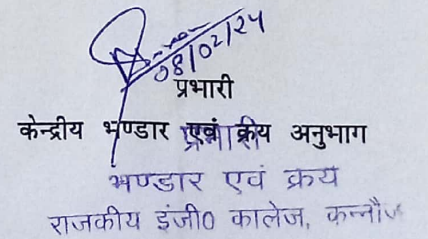 08/02/24
प्रभारी
केन्द्रीय भण्डार एवं क्रीय अनुभाग
प्रभारी
भण्डार एवं क्रय
राजकीय इंजी0 कालेज, कन्नौज